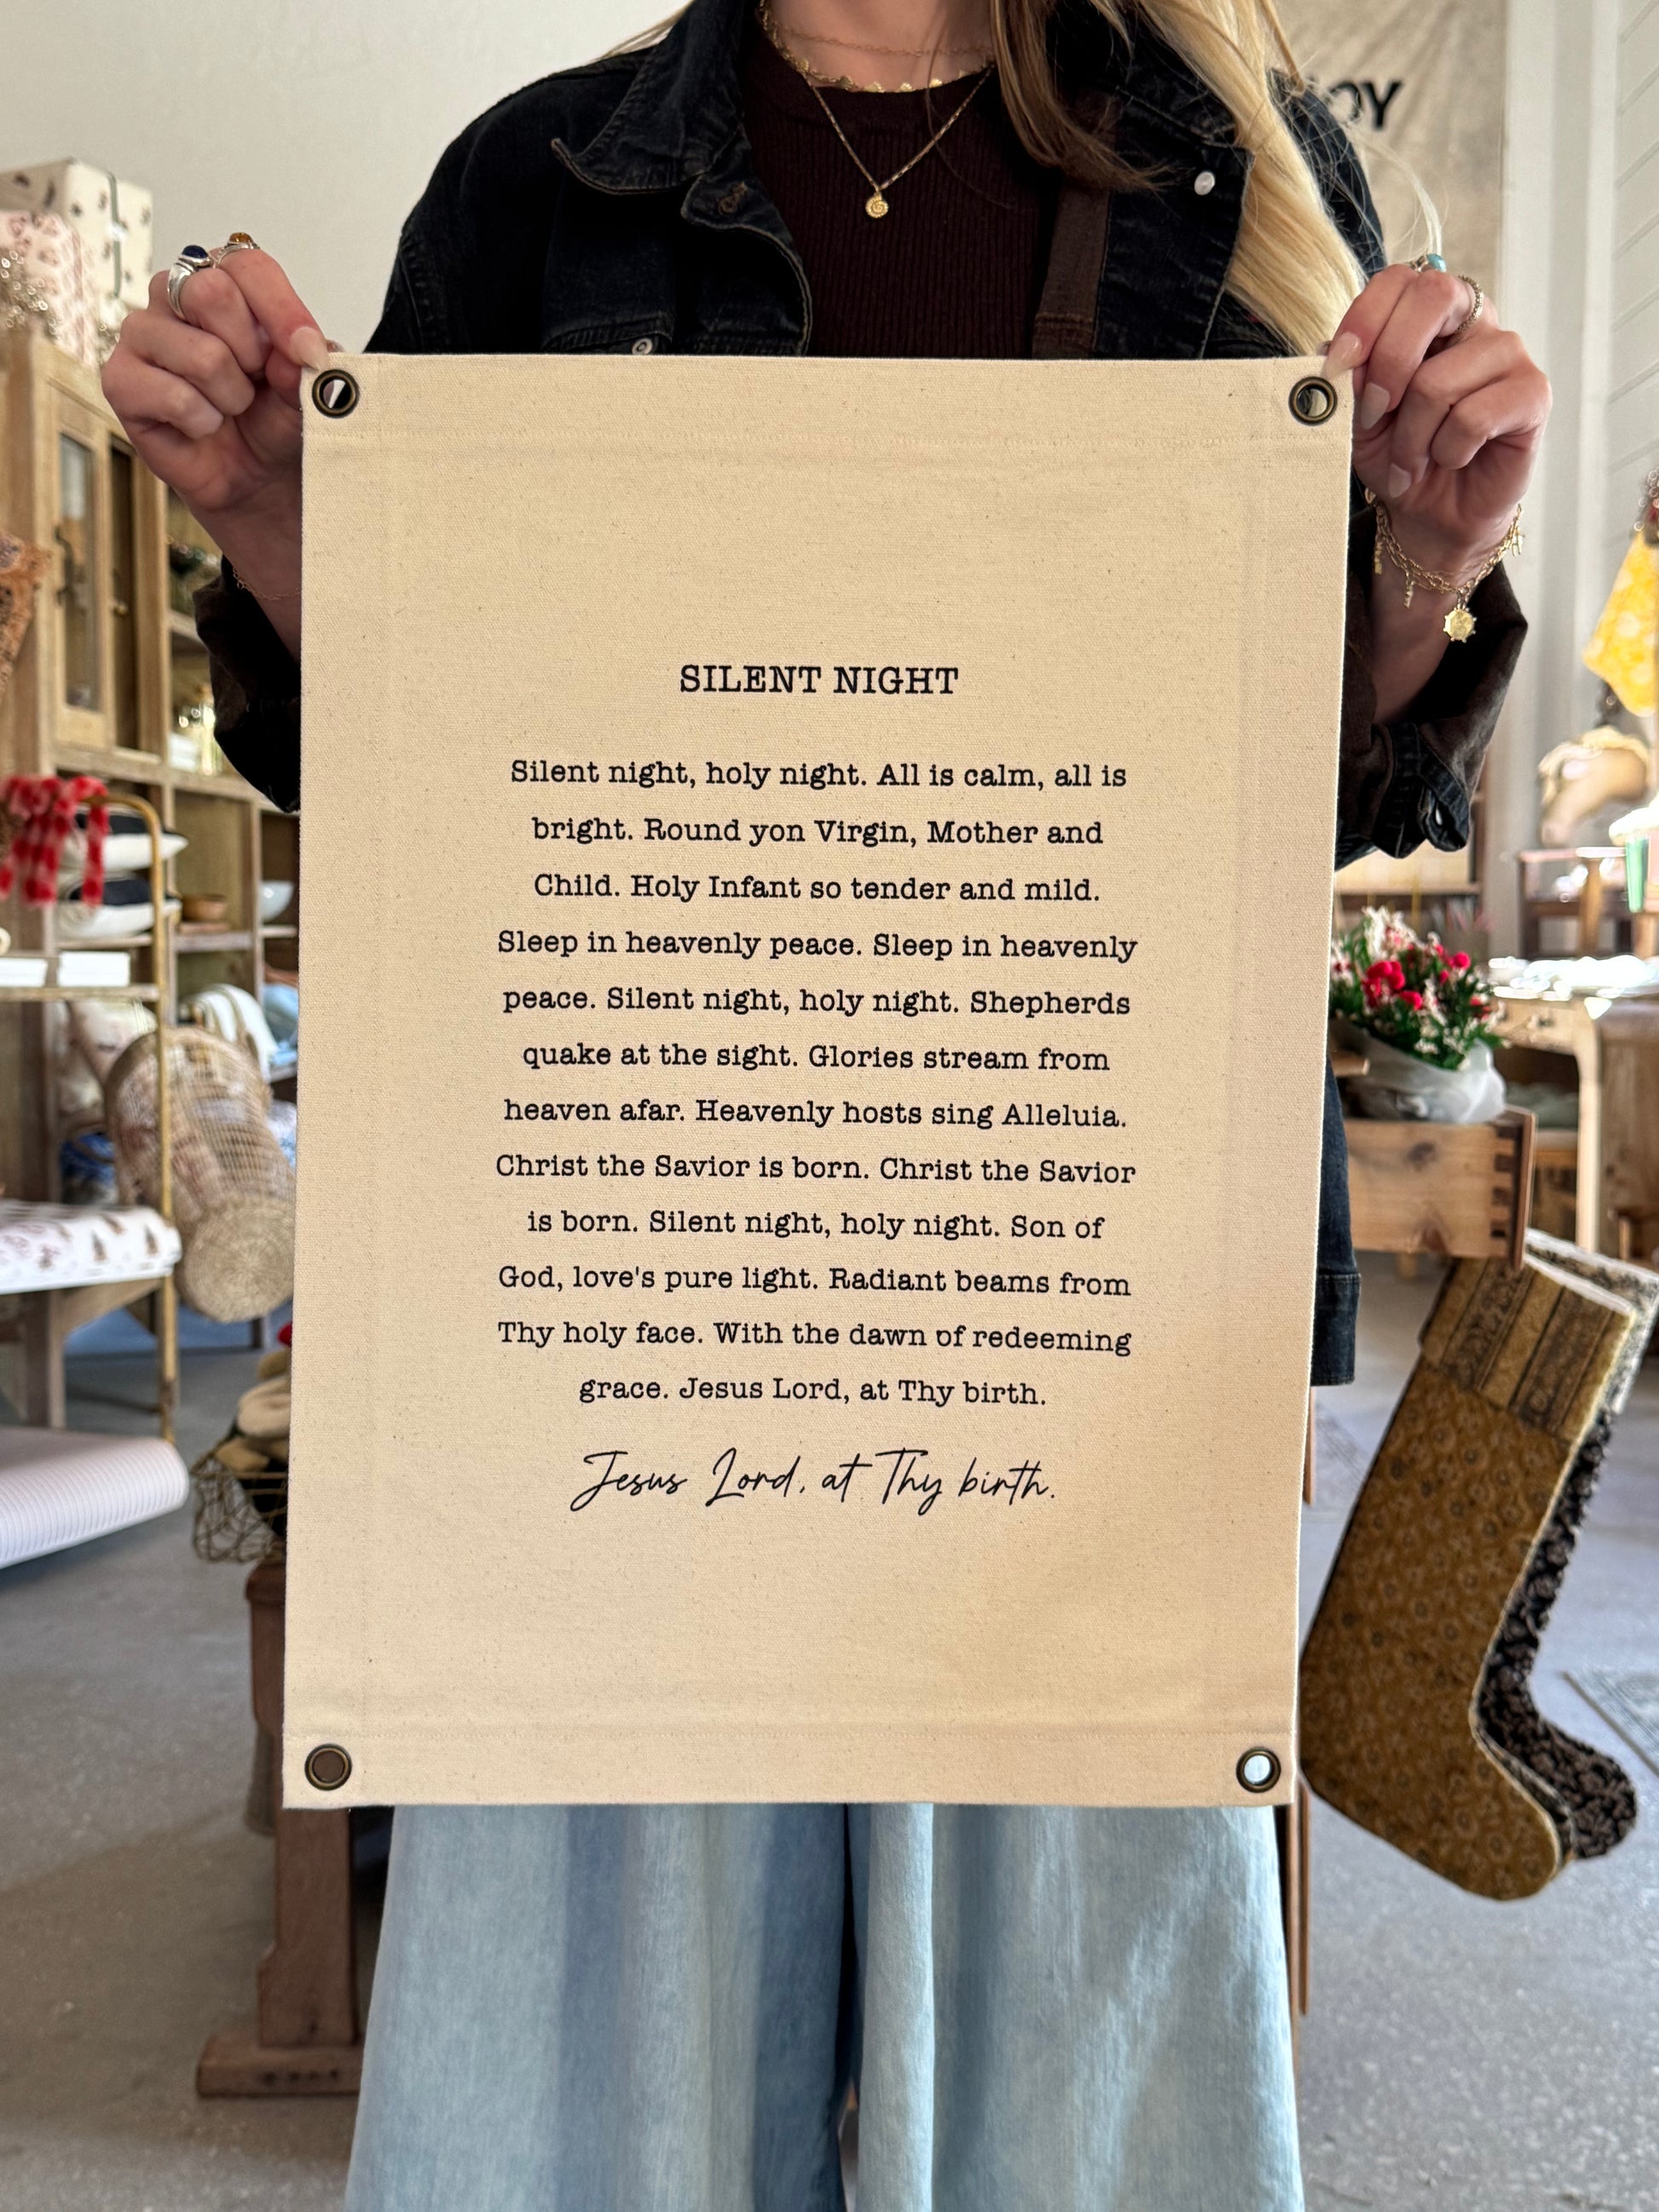 SILENT NIGHT
Silent night, holy night. All is calm, all is
bright. Round yon Virgin, Mother and
Child. Holy Infant so tender and mild.
Sleep in heavenly peace. Sleep in heavenly
peace. Silent night, holy night. Shepherds
quake at the sight. Glories stream from
heaven afar. Heavenly hosts sing Alleluia.
Christ the Savior is born. Christ the Savior
is born. Silent night, holy night. Son of
God, love's pure light. Radiant beams from
Thy holy face. With the dawn of redeeming
grace. Jesus Lord, at Thy birth.
Jesus Lord, at Thy birth.